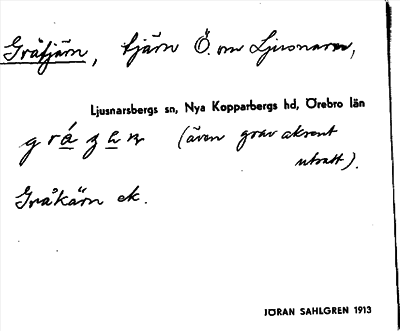 Gråtjärn, tjärn Ö. om Ljusnaren,
Ljusnarsbergs sn, Nya Kopparbergs hd, Örebro län
(även grav aksent
uttalt).
Gråkärn ek.
JÖRAN SAHLGREN 1913